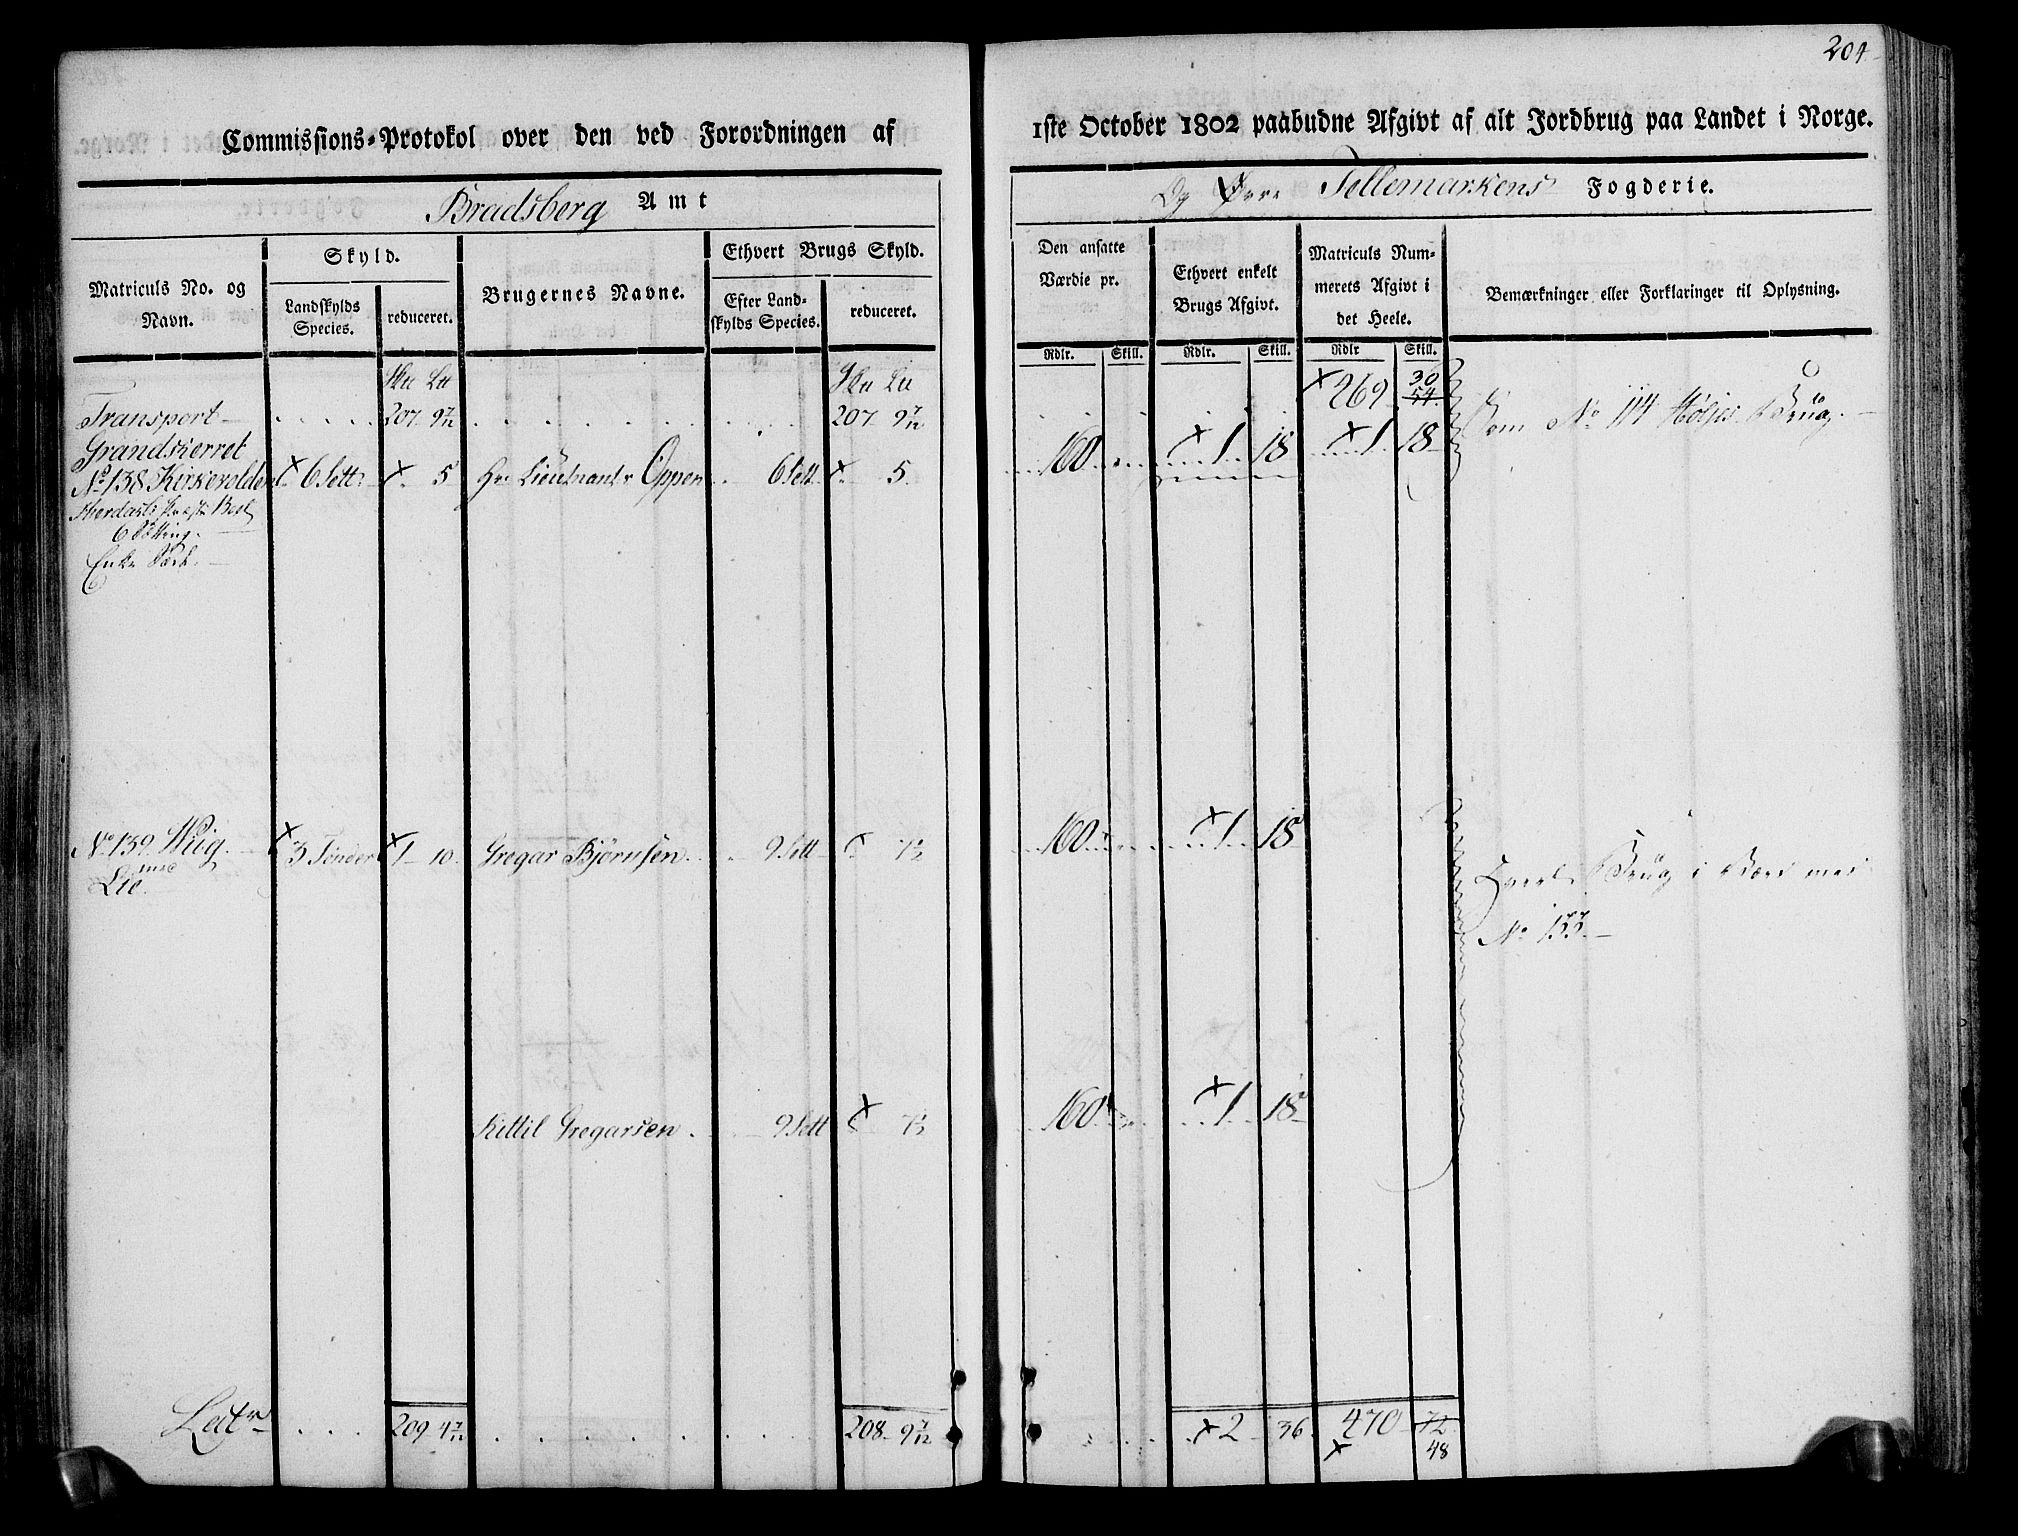 204
Commissions-Protokol over den ved Forordningen af
1ste October 1802 paabudne Afgivt af alt Jordbrug paa Landet i Norge.
Bradsberg Amt
Og Øvre Tellemarkens Fogderie.
Matriculs No. og Navn.
Skyld.
Landskylds Species.
reduceret.
Brugernes Navne.
Ethvert Brugs Skyld.
Efter Landskylds Species.
reduceret.
Den ansatte Værdie pr.
Ethvert enkelt Brugs Afgivt.
Matriculs Nummerets Afgivt i det Heele.
Bemærkninger eller Forklaringer til Oplysning.
Rdlr. Skill. Rdlr. Skill. Rdlr Skill.
Transport 207 9 7/12 207 9 7/12 269 30 54
Grandskerret
No 138 Kirkevolden 6 Sett 5 Hr Lieutnant Oppen 6 Sett 5 160 1 18 1 18 Som No 114 Brug
Enke
No 139 Wiig 3 Tønder 1 10 Gregar Bjørnsen 9 Sett 7½ 160 1 18 Brug i med
med Lie No 133
Kittil Gregarsen 9 Sett 7½ 160 1 18
Latr 209 4 7/12 208 9 7/12 2 36 470 72
48